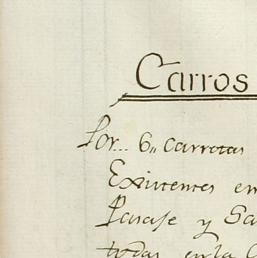 Carros
Por... 6,, carretas
Existentes en
Pasaje y Sa
todas en la C